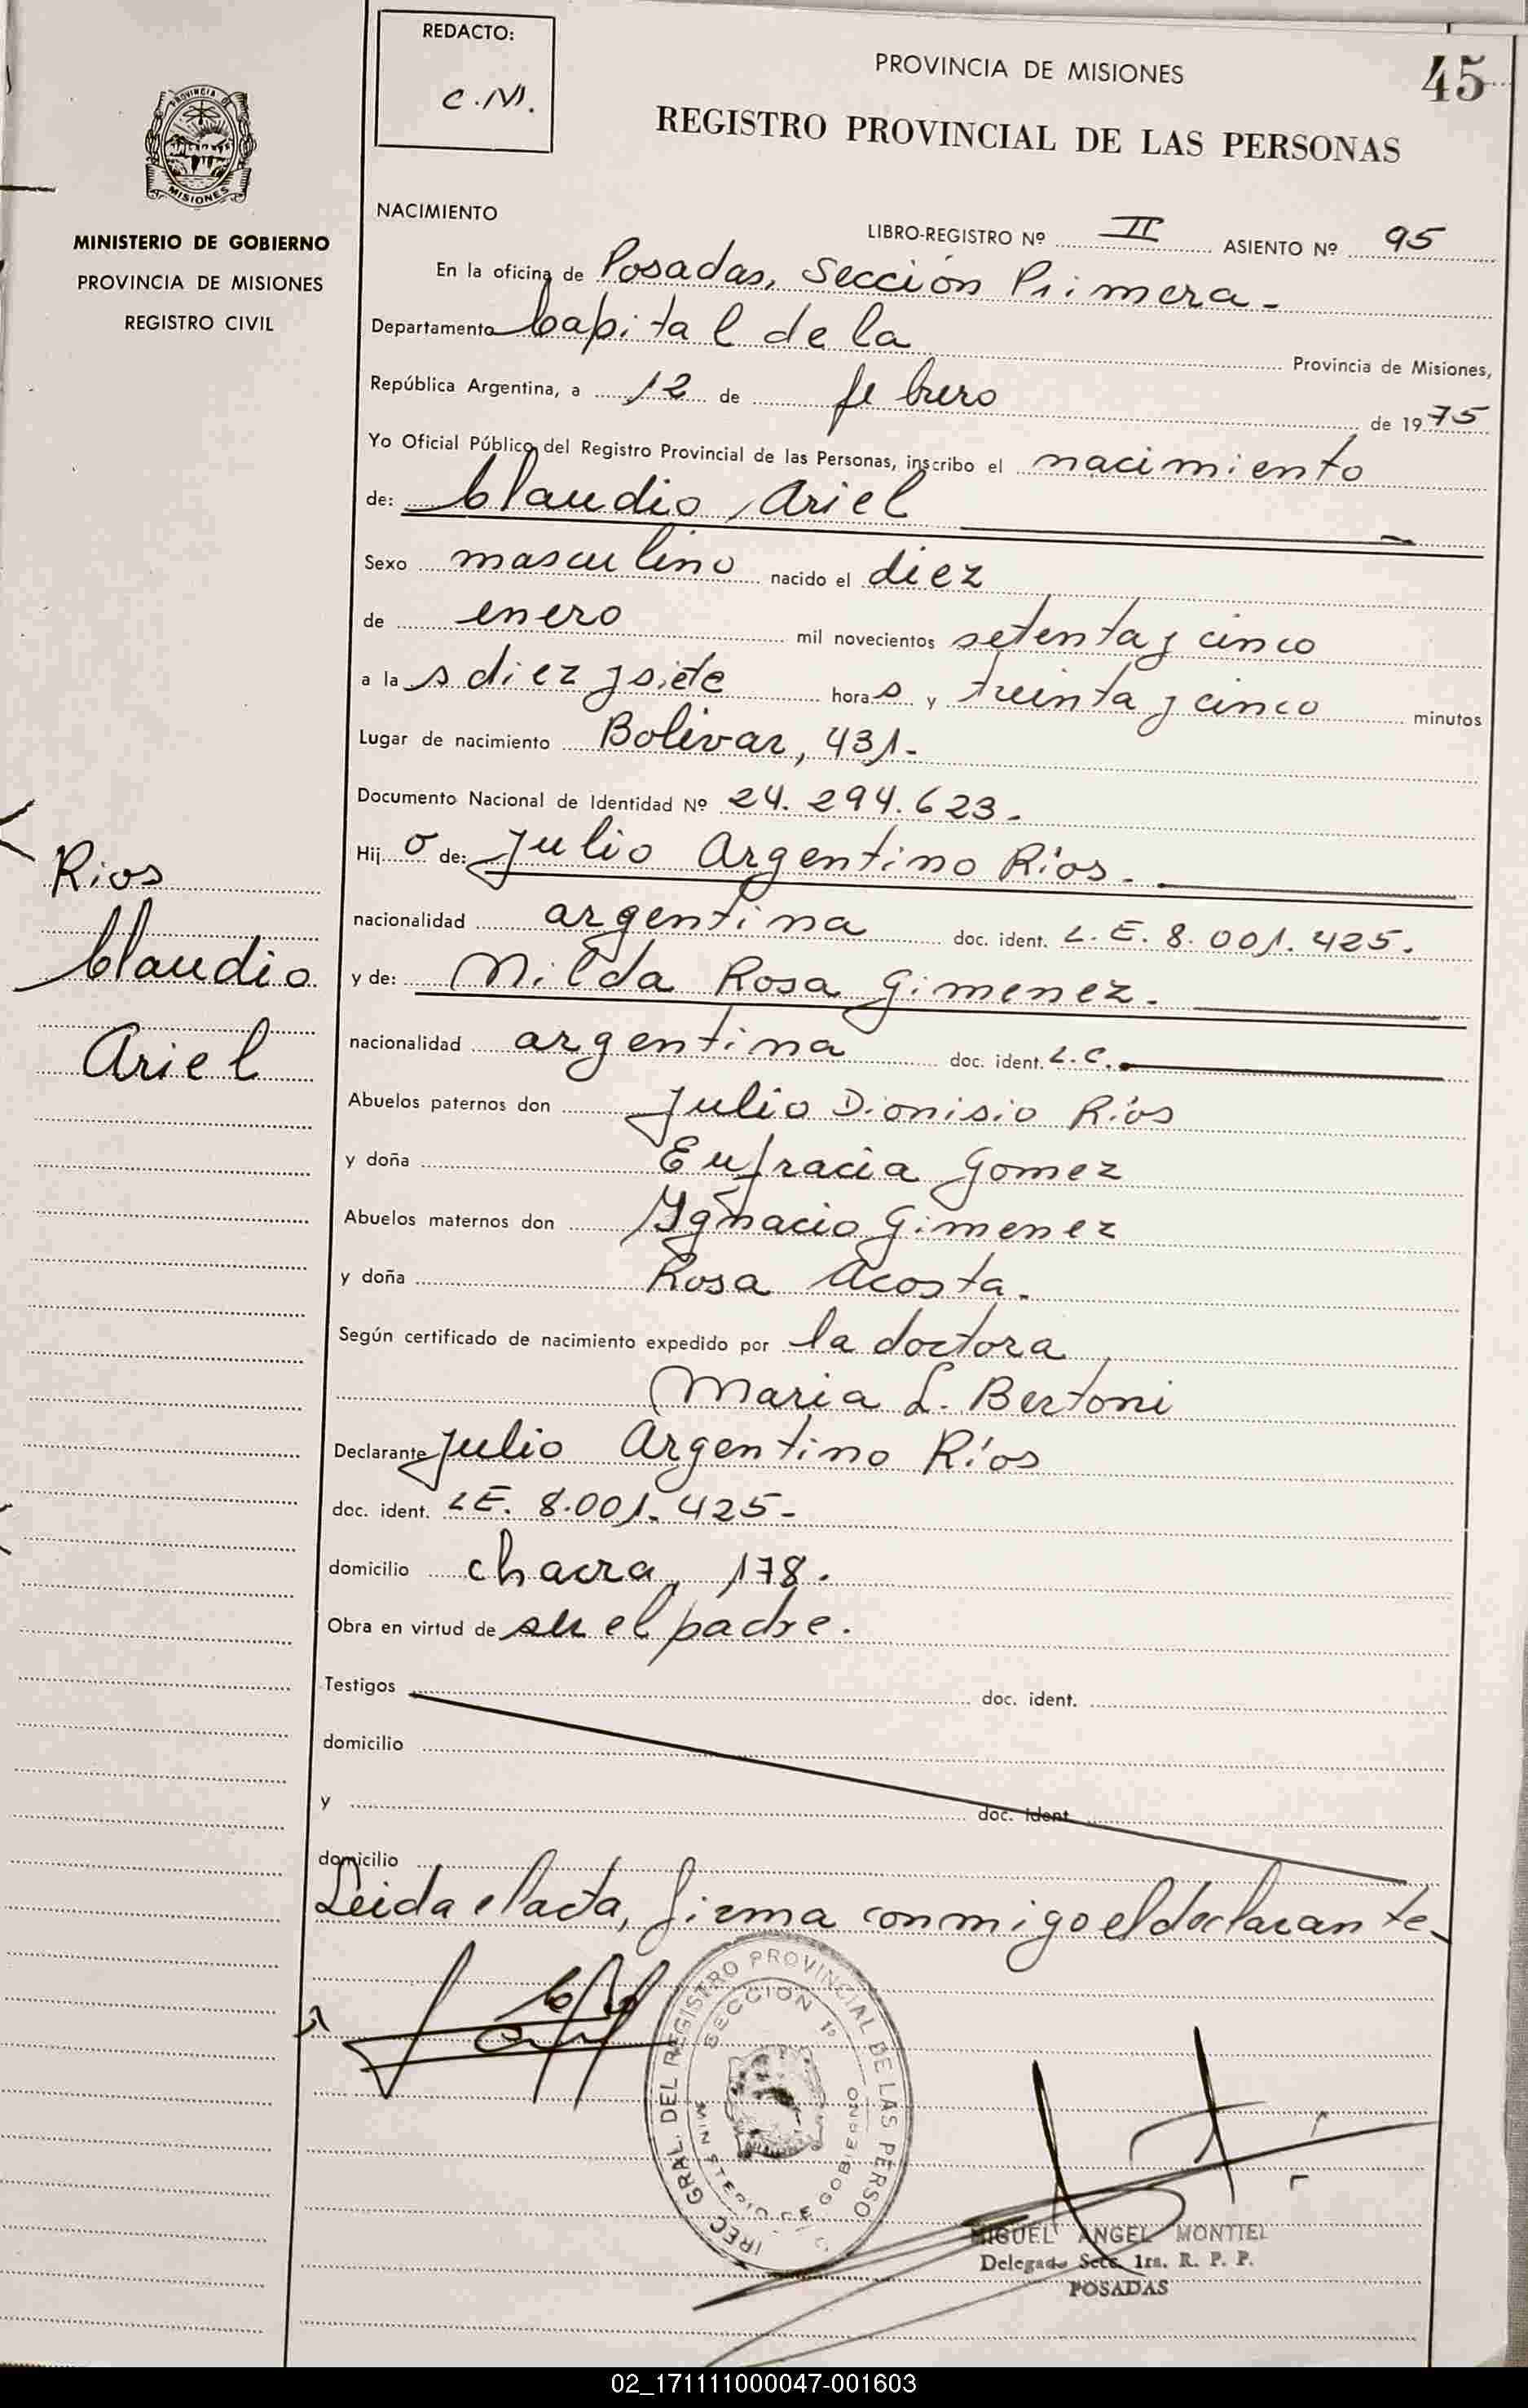 REDACTO:
C.M.
PROVINCIA DE MISIONES
45
REGISTRO PROVINCIAL DE LAS PERSONAS
PROVINCIA DE
MISIONES
MINISTERIO DE GOBIERNO
PROVINCIA DE MISIONES
REGISTRO CIVIL
NACIMIENTO
LIBRO-REGISTRO Nº II ASIENTO Nº 95
En la oficina de Posadas, Sección Primera-
Departamento Capital de la Provincia de Misiones,
República Argentina, a 12 de febrero de 1975
Yo Oficial Público del Registro Provincial de las Personas, inscribo el nacimiento
de: Claudio Ariel
Sexo masculino nacido el diez
de enero mil novecientos setenta y cinco
a las diez y siete horas y treinta y cinco minutos
Lugar de nacimiento Bolivar, 431-
Documento Nacional de Identidad Nº 24.294.623.
Hijo de: Julio Argentino Ríos.
nacionalidad argentina doc. ident. L.E. 8.001.425.
y de: Nilda Rosa Gimenez.
nacionalidad argentina doc. ident. L.C.
Abuelos paternos don Julio Dionisio Ríos
y doña Eufracia Gomez
Abuelos maternos don Ygnacio Gimenez
y doña Rosa Acosta.
Según certificado de nacimiento expedido por la doctora
Maria L. Bertoni
Declarante Julio Argentino Ríos
doc. ident. LE. 8.001.425-
domicilio chacra, 178.
Obra en virtud de ser el padre.
Testigos doc. ident.
domicilio
y doc. ident
domicilio
Leida el acta, firma conmigo el declarante-
Rios
Claudio
Ariel
DIREC GRAL. DEL REGISTRO PROVINCIAL DE LAS PERSO
SECCION 1º
MINISTERIO DE GOBIERNO
MIGUEL ANGEL MONTIEL
Delegado Secc. 1ra. R. P. P.
POSADAS
02_171111000047-001603